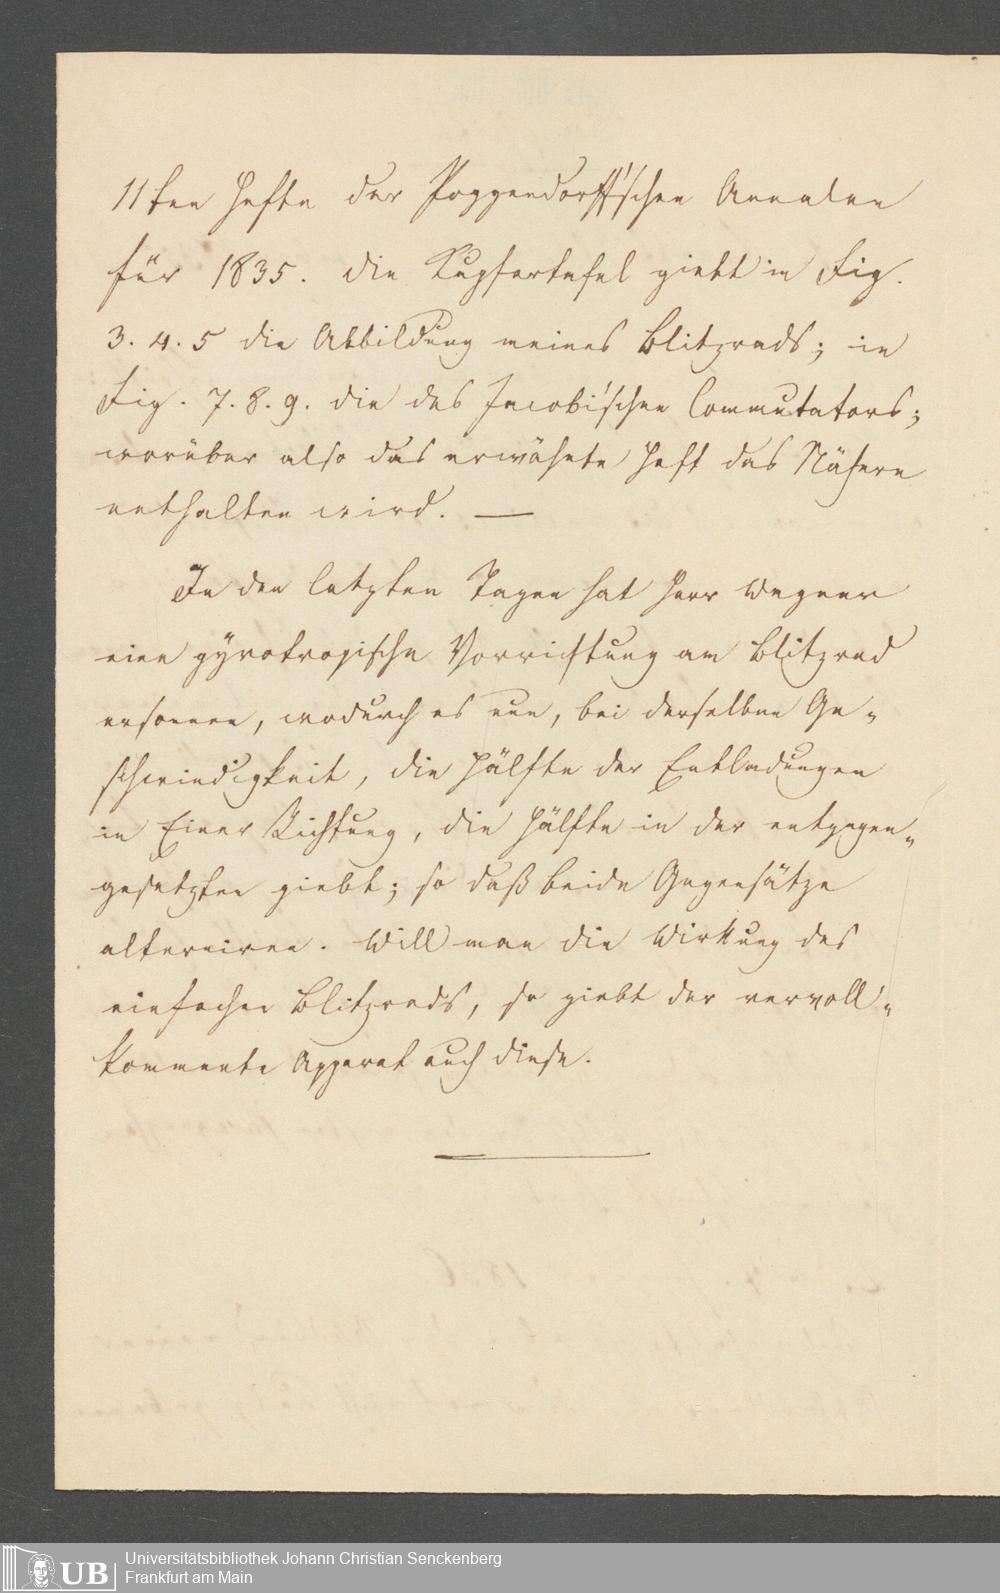 11ten Hefte der Poggendorff'schen Annalen
für 1835. die Kupfertafel giebt in Fig.
3. 4. 5 die Abbildung meines Blitzrads; in
Fig. 7. 8. 9. die des Jacobi'schen Commutators;
worüber also das erwähnte Heft das Nähere
enthalten wird. —
In den letzten Tagen hat Herr Wagner
eine gyrotropische Vorrichtung am Blitzrad
ersonnen, wodurch es nun, bei derselben Ge„
schwindigkeit, die Hälfte der Entladungen
in Einer Richtung, die Hälfte in der entgegen„
gesetzten giebt; so daß beide Gegensätze
alterniren. Will man die Wirkung des
einfachen Blitzrads, so giebt der vervoll„
kommnete Apparat auch diese.
UB
Universitätsbibliothek Johann Christian Senckenberg
Frankfurt am Main